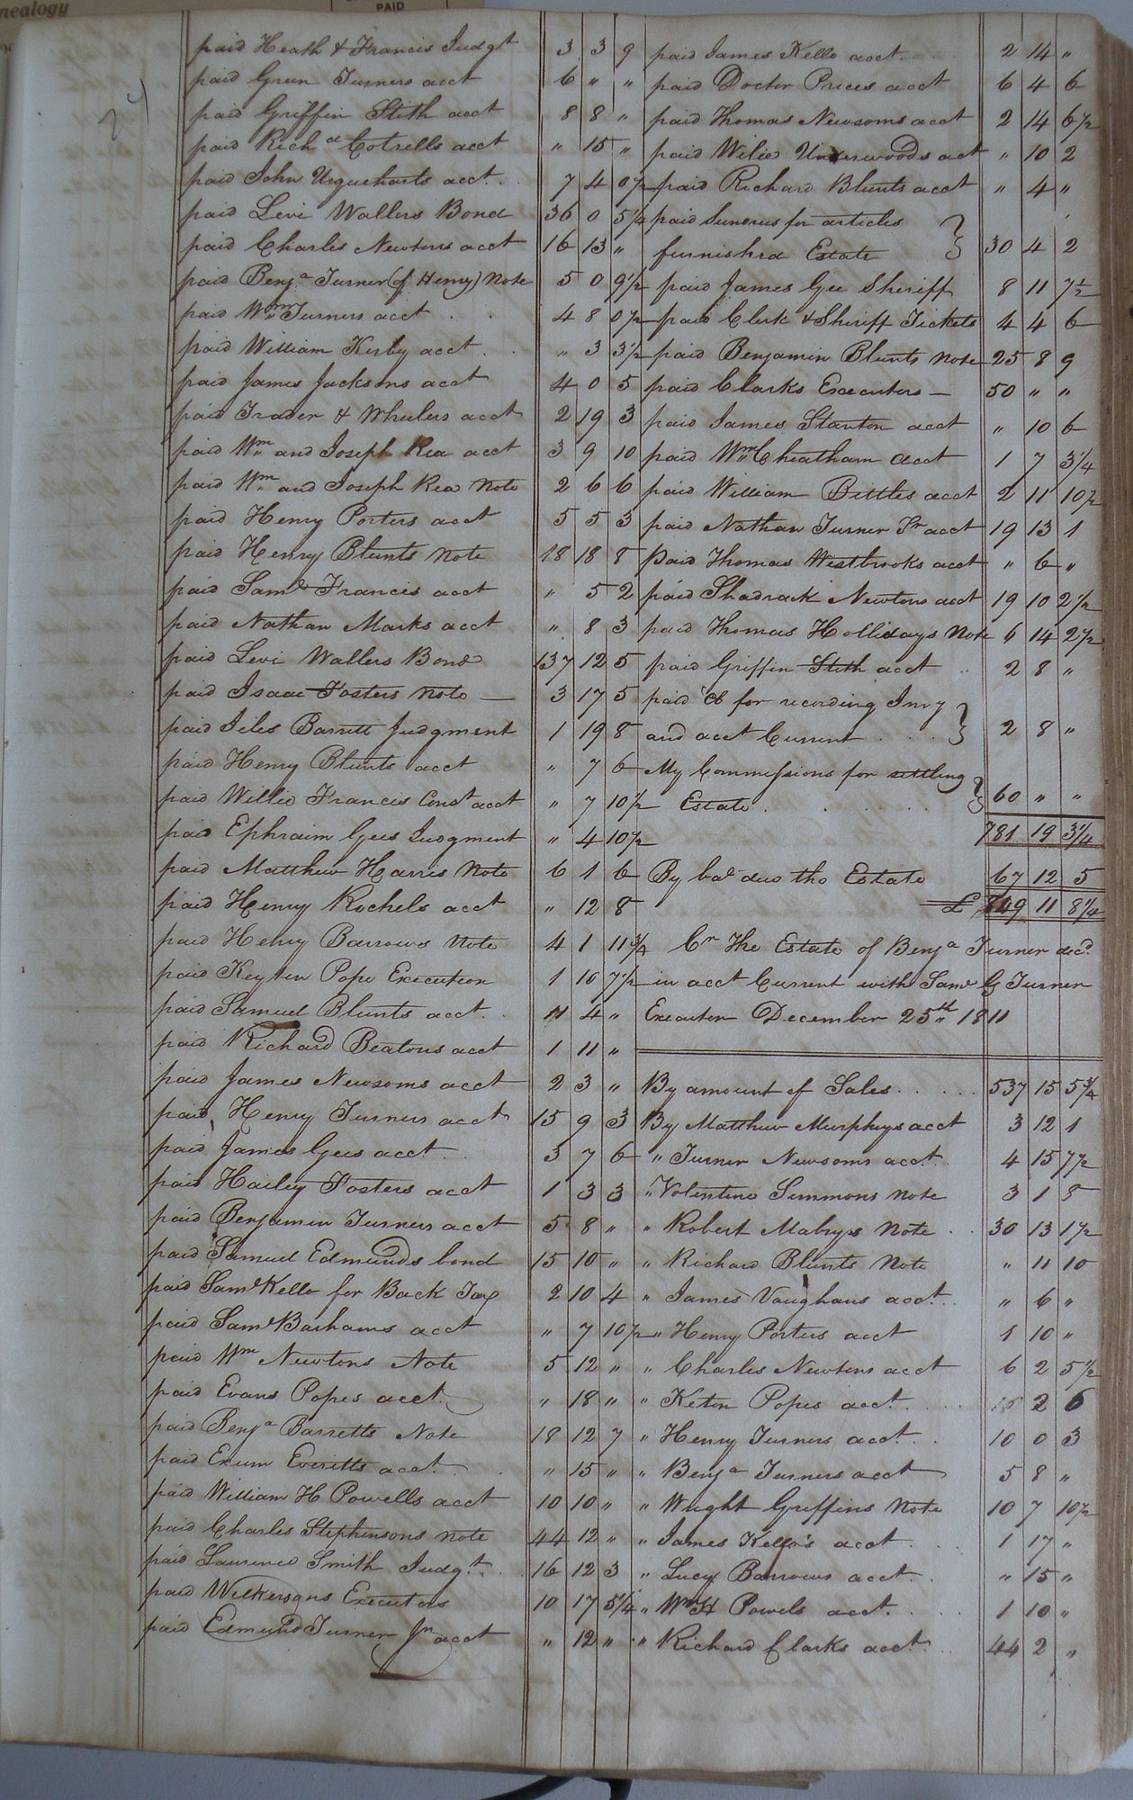 nealogy
PAID
24
paid Heath & Francis Judgt 3 3 9
paid Green Turners acct 6 " "
paid Griffin Stith acct 8 8 "
paid Richd Cotrells acct " 15 "
paid John Urquharts acct 7 4 0½
paid Levi Wallers Bond 36 0 5¼
paid Charles Newtons acct 16 13 "
paid Benja Turner (of Henry) Note 5 0 9½
paid Wm Turners acct 4 8 0½
paid William Kirby acct " 3 3½
paid James Jacksons acct 4 0 5
paid Trader & Wheelers acct 2 19 3
paid Wm and Joseph Rea acct 3 9 10
paid Wm and Joseph Rea Note 2 6 6
paid Henry Porters acct 5 5 3
paid Henry Blunts Note 18 18 8
paid Saml Francis acct " 5 2
paid Nathan Marks acct " 8 3
paid Levi Wallers Bond 137 12 5
paid Isaac Fosters Note 3 17 5
paid Jiles Barrett Judgment 1 19 8
paid Henry Blunts acct " 7 6
paid Willie Francis Const acct " 7 10½
paid Ephraim Gees Judgment " 4 10½
paid Matthew Harris Note 6 1 6
paid Henry Rochels acct " 12 8
paid Henry Barrows Note 4 1 11¾
paid Pope Execution 1 10 7½
paid Samuel Blunts acct 11 4 "
paid Richard Beatons acct 1 11 "
paid James Newsoms acct 2 3 "
paid Henry Turners acct 15 9 3
paid James Gees acct 3 7 6
paid Hailey Fosters acct 1 3 3
paid Benjamin Turners acct 5 8 "
paid Samuel Edmunds bond 15 10 "
paid Saml Kello for Back Tax 2 10 4
paid Saml Barhams acct " 7 10½
paid Wm Newtons Note 5 12 "
paid Evans Popes acct " 18 "
paid Benja Barretts Note 18 12 7
paid Exum Everitts acct " 15 "
paid William H Powells acct 10 10 "
paid Charles Stephensons note 44 12 "
paid Laurence Smith Judgt 16 12 3
paid Wilkersons Executors 10 17 5¼
paid Edmund Turner Jn acct " 12 "
paid James Kello acct 2 14 "
paid Doctor Prices acct 6 4 6
paid Thomas Newsoms acct 2 14 6½
paid Wilie Underwoods act " 10 2
paid Richard Blunts acct " 4 "
paid Sundries for articles
furnishd Estate 30 4 2
paid James Gee Sheriff 8 11 7½
paid Clerk & Sheriff Tickets 4 4 6
paid Benjamin Blunts Note 25 8 9
paid Clarks Executors 50 " "
paid James Stanton acct " 10 6
paid Wm Cheatham acct 1 7 3¼
paid William Bittles acct 2 11 10½
paid Nathan Turner Sr acct 19 13 1
paid Thomas Westbrooks acct " 6 "
paid Shadrack Newtons acct 19 10 2½
paid Thomas Hollidays Note 6 14 2½
paid Griffin Stith acct 2 8 "
paid for recording Invy
and acct Current 2 8 "
My Commissions for settling
Estate 60 " "
781 19 3¼
By bal due the Estate 67 12 5
£ 849 11 8¼
Cr The Estate of Benja Turner decd
in acct Current with Saml G Turner
Executor December 25th 1811
By amount of Sales 537 15 5¾
By Matthew Murphys acct 3 12 1
" Turner Newsoms acct 4 15 7½
" Volentine Simmons note 3 1 8
" Robert Mabrys Note 30 13 1½
" Richard Blunts Note " 11 10
" James Vaughans acct " 6 "
" Henry Porters acct 1 10 "
" Charles Newtons acct 6 2 5½
" Keton Popes acct 2 6
" Henry Turners acct 10 0 3
" Benja Turners acct 5 8 "
" Wright Griffins Note 10 7 10½
" James Kello's acct 1 17 "
" Lucy Barrows acct " 15 "
" Wm H Powels acct 1 10 "
" Richard Clarks acct 44 2 "